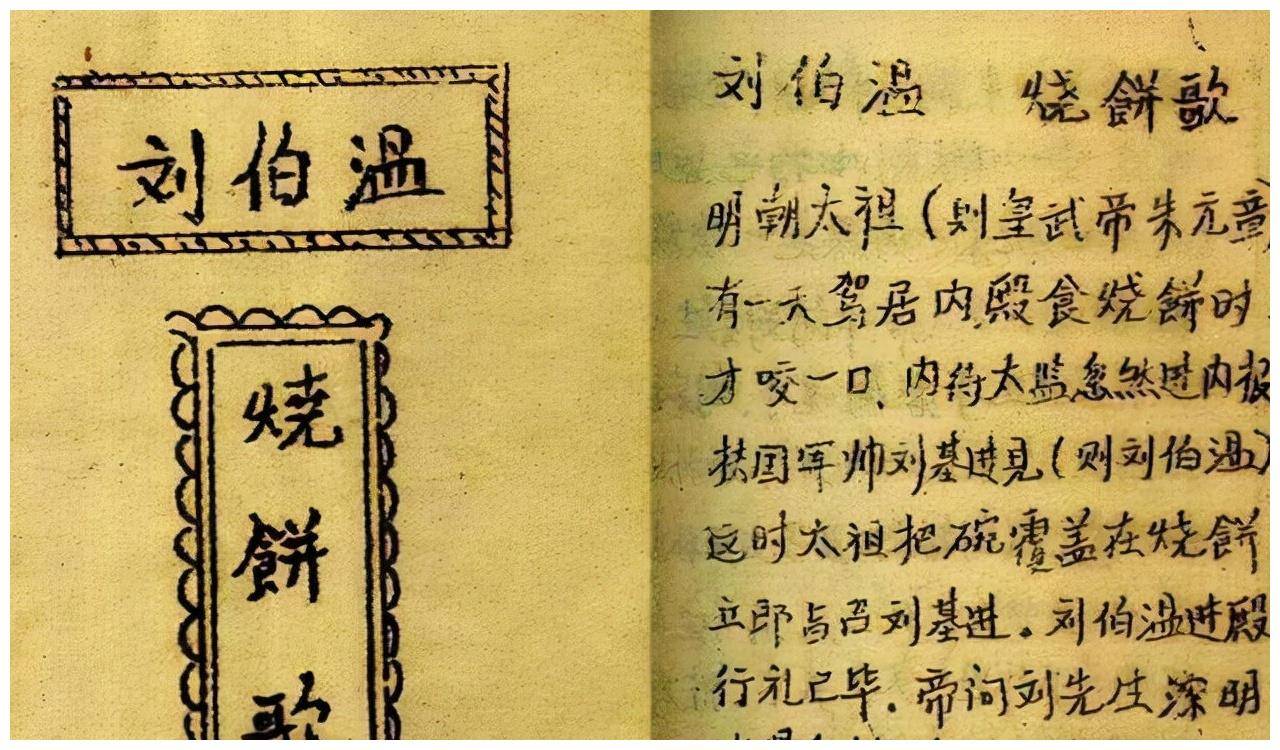 刘伯温
燒
餅
歌
刘伯温 烧餅歌
明朝太祖(则皇武帝朱元章)
有一天驾居内殿食烧餅时
才咬一口、内待太监忽然进内报
国军帅刘基进見(则刘伯温)
这时太祖把碗覆盖在烧餅
立即召刘基进。刘伯温进殿
行礼己毕。帝问刘先生深明